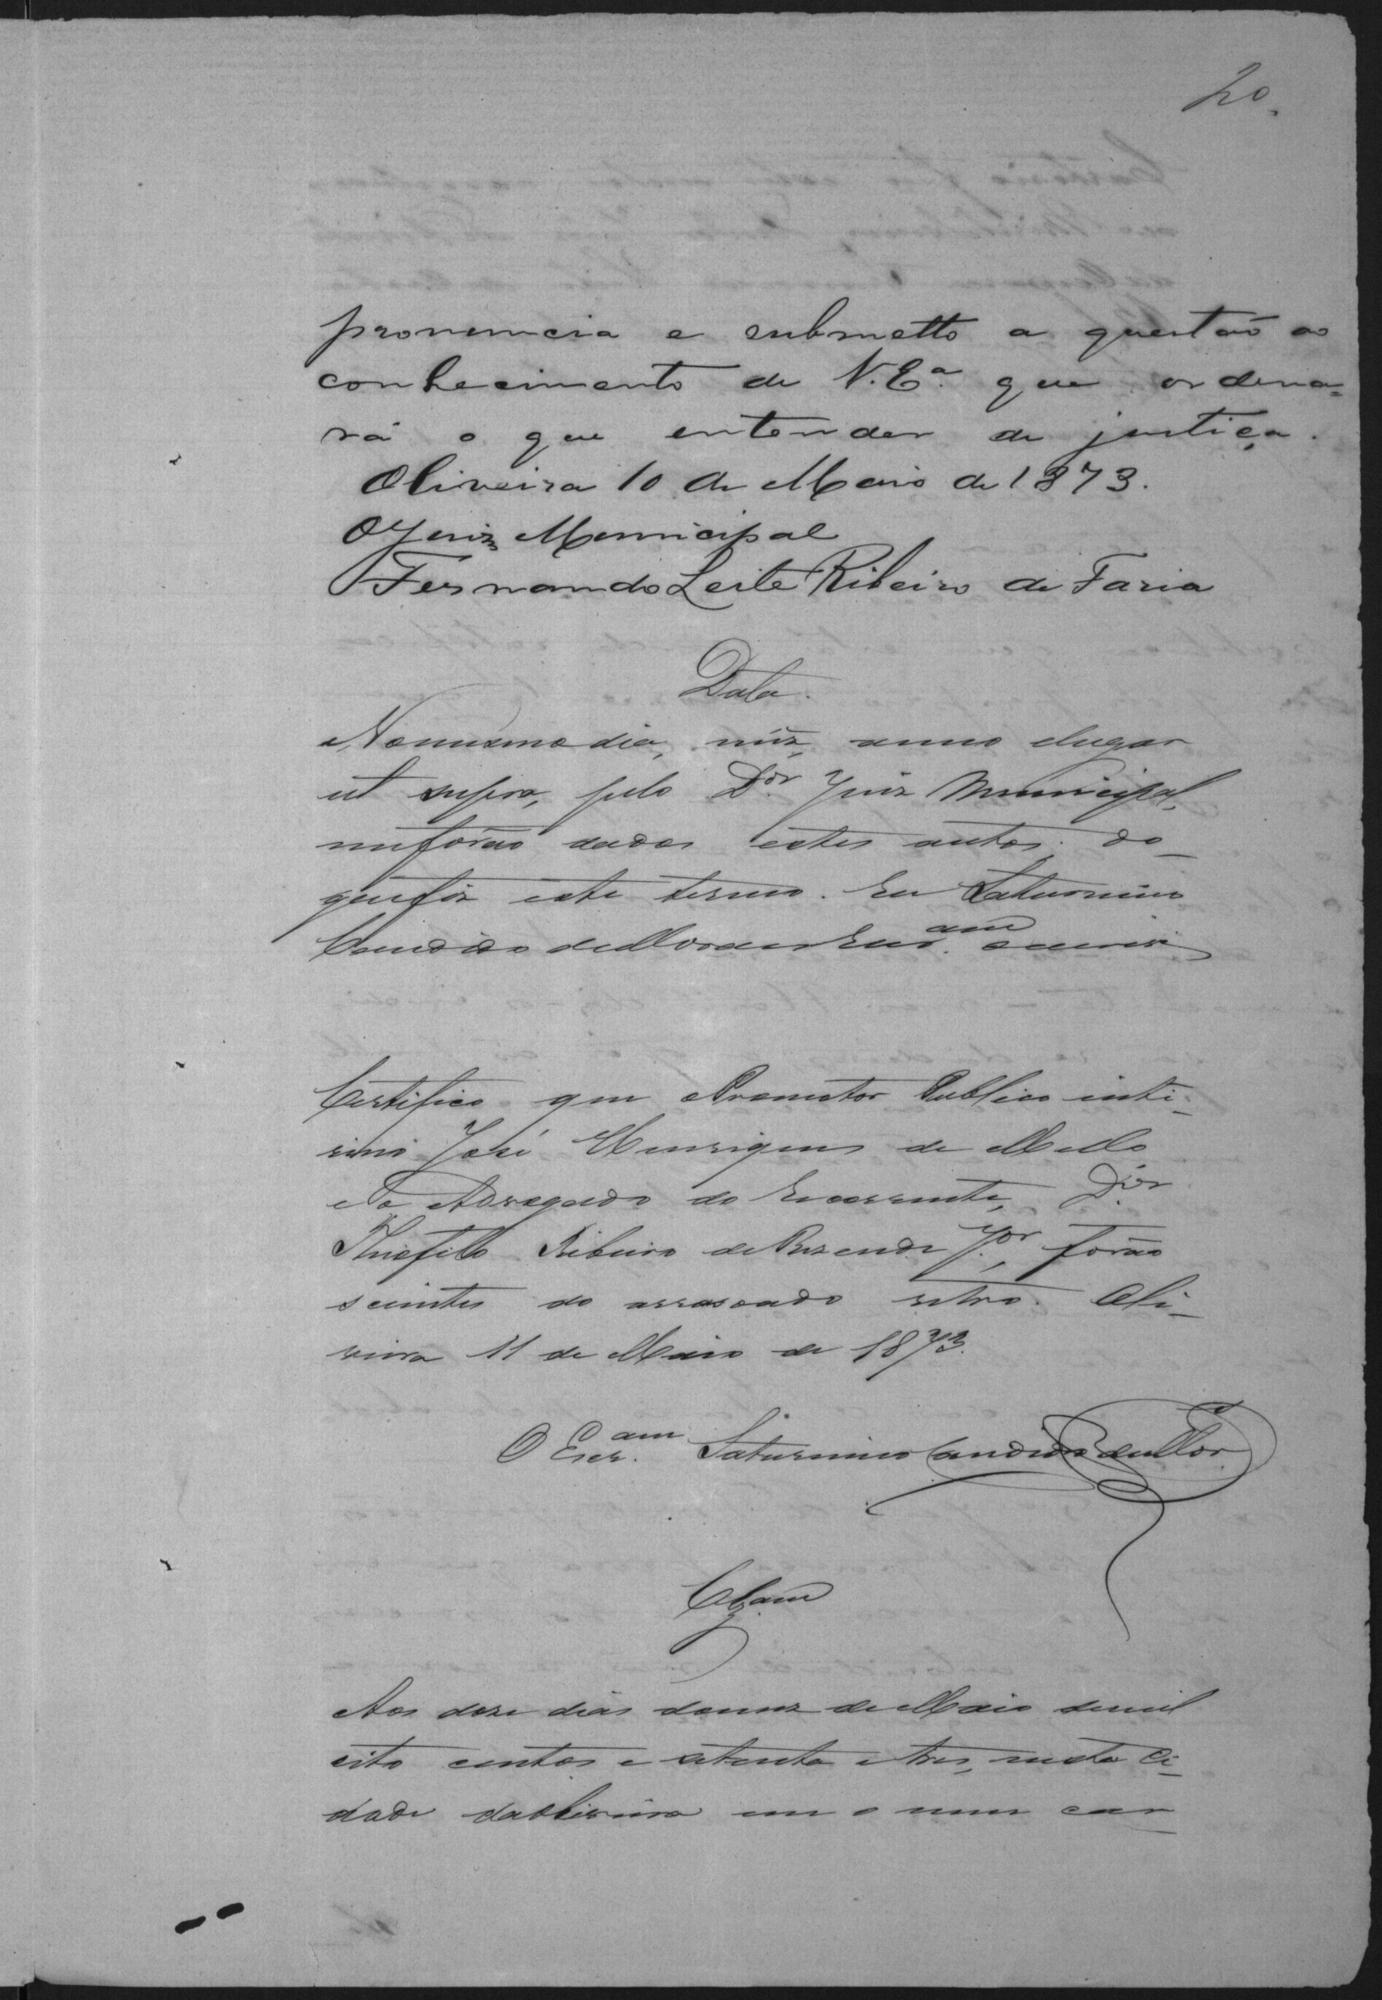 20.
pronuncia e submetto a questão ao
conhecimento de V. Ex.ª que ordena=
rá o que entender de justiça.
Oliveira 10 de Maio de 1873.
O Juiz Municipal
Fernando Leite Ribeiro de Faria
Data.
No mesmo dia, mez, anno e lugar
ut supra, pelo D.or Juiz Municipal,
me forão dados estes autos. do
que fiz este termo. Eu Saturnino
Candido de escrevi
Certifico que o Promotor Publico inte-
rino José Henriques de Mello
e o Advogado do Recorrente, D.or
Theofilo Ribeiro de Rezende J.or, forão
scientes do arrasoado retro. Oli-
veira 11 de Maio de 1873.
O Escr.am Saturnino Candido
Aos doze dias do mez de Maio de mil
oito centos e setenta e tres, nesta Ci-
dade da Oliveira em o meu car-